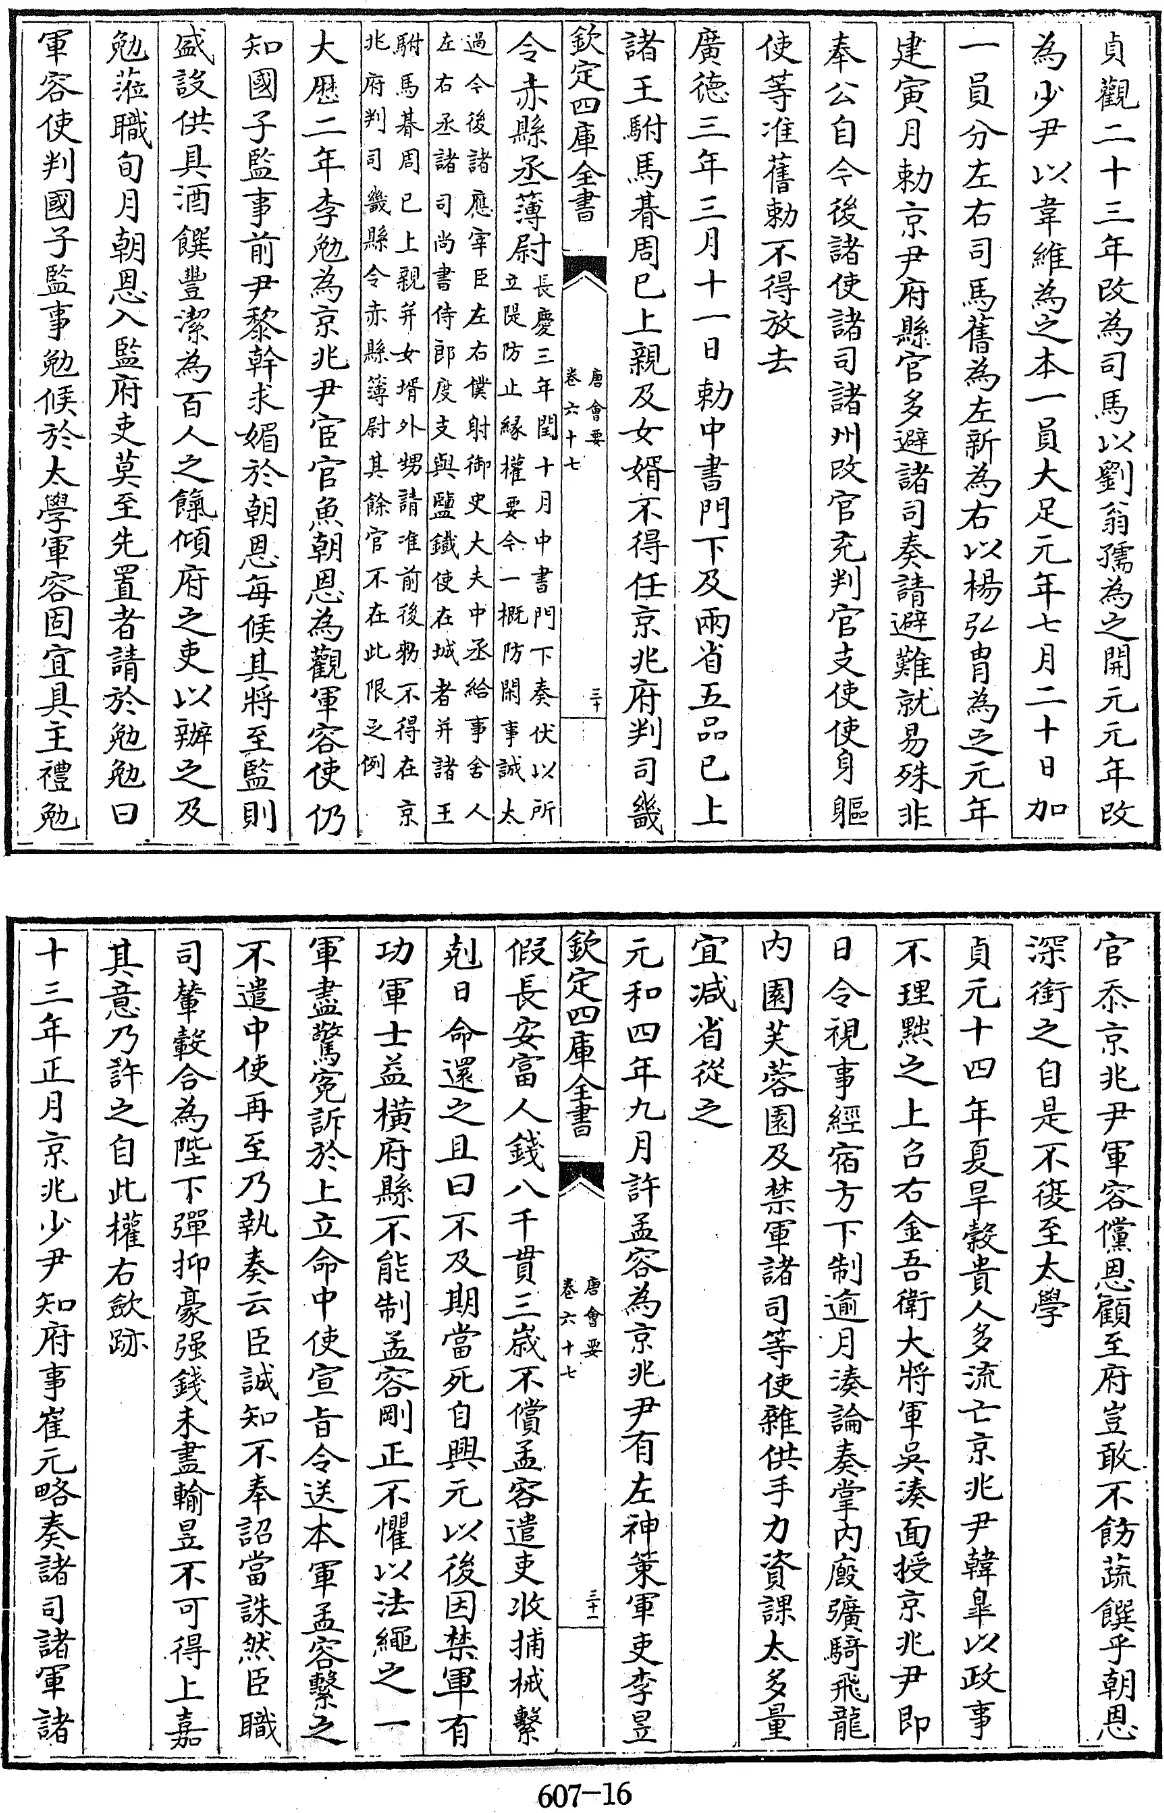 貞觀二十三年改為司馬以劉翁孺為之開元元年改
為少尹以韋維為之本一員大足元年七月二十日加
一員分左右司馬舊為左新為右以楊弘胄為之元年
建寅月勅京尹府縣官多避諸司奏請避難就易殊非
奉公自今後諸使諸司諸州改官充判官支使使身軀
使等准舊勅不得放去
廣德三年三月十一日勅中書門下及兩省五品已上
諸王駙馬朞周已上親及女婿不得任京兆府判司畿
欽定四庫全書
唐會要
卷六十七
三十
令赤縣丞薄尉
長慶三年閏十月中書門下奏伏以所
立隄防止緣權要今一概防閑事誠太
過今後諸應宰臣左右僕射御史大夫中丞給事舍人
左右丞諸司尚書侍郎度支與鹽鐵使在城者并諸王
駙馬朞周已上親并女壻外甥請准前後勑不得在京
兆府判司畿縣令赤縣簿尉其餘官不在此限之例
大厯二年李勉為京兆尹宦官魚朝恩為觀軍容使仍
知國子監事前尹黎幹求媚於朝恩每候其將至監則
盛設供具酒饌豐潔為百人之餼傾府之吏以辦之及
勉蒞職旬月朝恩入監府吏莫至先置者請於勉勉曰
軍容使判國子監事勉候於太學軍容固宜具主禮勉
官忝京兆尹軍容儻恩顧至府豈敢不飭蔬饌乎朝恩
深銜之自是不復至太學
貞元十四年夏旱穀貴人多流亡京兆尹韓臯以政事
不理黜之上召右金吾衛大將軍吳湊面授京兆尹即
日令視事經宿方下制逾月湊論奏掌內廄彍騎飛龍
內園芙蓉園及禁軍諸司等使雜供手力資課太多量
宜減省從之
元和四年九月許孟容為京兆尹有左神策軍吏李昱
欽定四庫全書
唐會要
卷六十七
三十一
假長安富人錢八千貫三歲不償孟容遣吏收捕械繫
剋日命還之且曰不及期當死自興元以後因禁軍有
功軍士益橫府縣不能制孟容剛正不懼以法繩之一
軍盡驚寃訴於上立命中使宣旨令送本軍孟容繫之
不遣中使再至乃執奏云臣誠知不奉詔當誅然臣職
司輦轂合為陛下彈抑豪强錢未盡輸昱不可得上嘉
其意乃許之自此權右歛跡
十三年正月京兆少尹知府事崔元略奏諸司諸軍諸
607-16